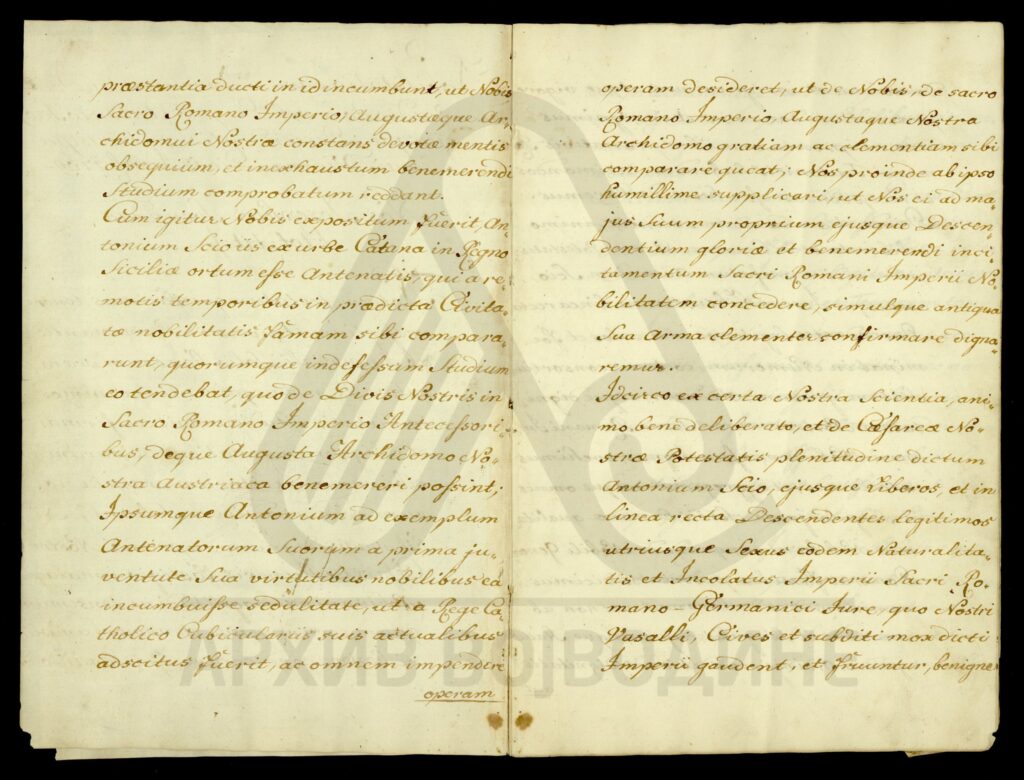 præstantia ducti in id incumbunt, ut Nobis
Sacro Romano Imperio, Augustæque Ar-
chidomui Nostræ constans devotæ mentis
obsequium, et inexhaustum benemerendi
Studium comprobatum reddant.
Cum igitur Nobis expositum Fuerit, An-
tonium Scio is ex urbe Catana in Regno
Siciliæ ortum esse Antenatis, qui a re-
motis temporibus in prædicta Civita-
te nobilitatis Famam sibi compara-
runt, quorumque indefessum Studium
eo tendebat, quo de Divis Nostris in
Sacro Romano Imperio Antecessori-
bus, deque Augusta Archidomo No-
stra Austriaca benemereri possint;
Ipsumque Antonium ad exemplum
Antenatorum Suorum a prima ju-
ventute Sua virtutibus nobilibus ea
incumbuisse sedulitate, ut a Rege Ca-
tholico Cubiculariis suis actualibus
adscitus Fuerit, ac omnem impendere
operam
operam desideret, ut de Nobis, de sacro
Romano Imperio, Augustaque Nostra
Archidomo gratiam ac clementiam sibi
comparare queat; Nos proinde ab ipso
humillime supplicari, ut Nos ei ad ma-
jus Suum proprium ejusque Descen-
dentium gloriæ et benemerendi inci-
tamentum Sacri Romani Imperii No-
bilitatem concedere, simulque antiqua
Sua Arma clementer confirmare digna-
remur.
Idcirco ex certa Nostra Scientia, ani-
mo bene deliberato, et de Cæsareæ No-
stræ Potestatis plenitudine dictum
Antonium Scio, ejusque Liberos, et in
linea recta Descendentes legitimos
utriusque Sexus eodem Naturalita-
tis et Incolatus Imperii Sacri Ro-
mano-Germanici Iure, quo Nostri
Vasalli, Cives et subditi mox dicti
Imperii gaudent, et Fruuntur, benigne
АРХИВ ВОЈВОДИНЕ